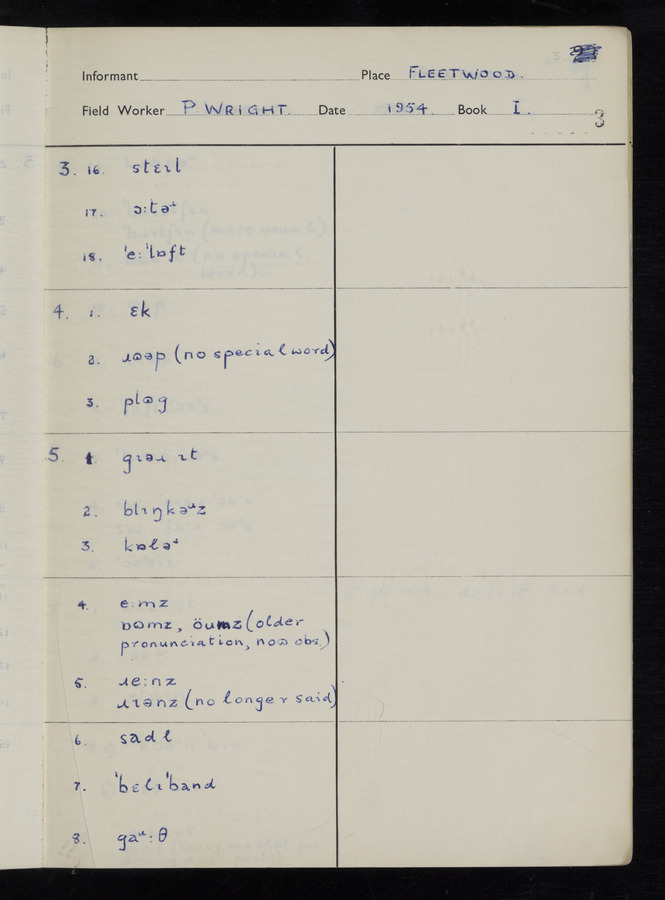 Informant Place FLEETWOOD.
Field Worker P. WRIGHT. Date 1954. Book I.
3
3. 16. stɛɪl
17. ɔ:təʴ
18. ˈe:ˈlɒft
4. 1. ɛk
2. ɹɷəp (no special word)
3. plɷg
5. 1 gɪəɹ ɪt
2. blɪŋkəʴz
3. kɒləʴ
4. e:mz
ɒɷmz, öumz (older
pronunciation, now obs.)
5. ɹe:nz
ɹɪənz (no longer said)
6. sadl
7. ˈbɛlɪˈband
8. gaʴ:θ